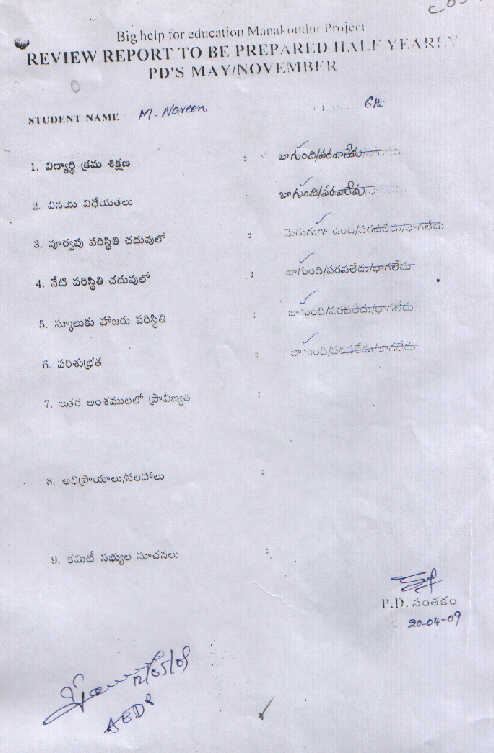 Big help for education Manakondur Project
REVIEW REPORT TO BE PREPARED HALF YEARLY
PD'S MAY/NOVEMBER
STUDENT NAME M. Naveen
1. విద్యార్థి క్రమ శిక్షణ : బాగుంది/పరవాలేదు
2. వినయ విధేయతలు బాగుంది/పరవాలేదు
3. పూర్వపు పరిస్థితి చదువులో : మెరుగుగా ఉంది/పరవలేదు/బాగలేదు
4. నేటి పరిస్థితి చదువులో : బాగుంది/పరవలేదు/బాగలేదు
5. స్కూలుకు హాజరు పరిస్థితి : బాగుంది/పరవలేదు/బాగలేదు
6. పరిశుభ్రత : బాగుంది/పరవలేదు/బాగలేదు
7. ఇతర అంశములలో ప్రావిణ్యత :
8. అభిప్రాయాలు/సలహాలు :
9. కమిటీ సభ్యుల సూచనలు :
P.D. సంతకం
20-04-09
12/05/09